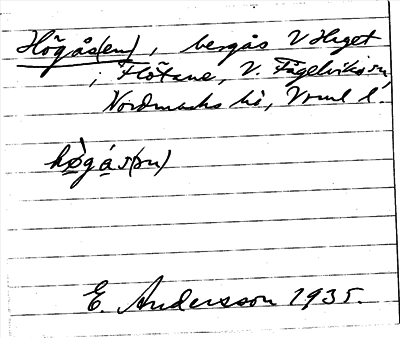 Högås(en), bergås V Höget
i Flötane, V. Fågelviks sn,
Nordmarks hd, Vrml l.
högás(ən)
E. Andersson 1935.